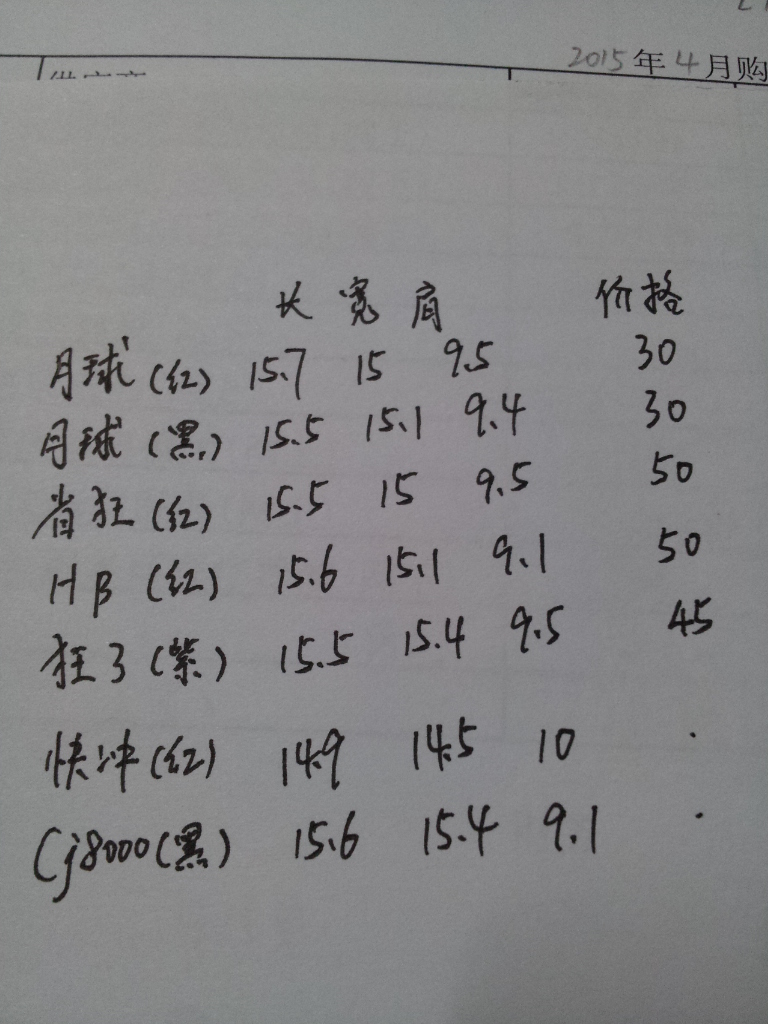 2015年4月购
长 宽 肩 价格
月球(红) 15.7 15 9.5 30
月球(黑) 15.5 15.1 9.4 30
省狂(红) 15.5 15 9.5 50
Hβ(红) 15.6 15.1 9.1 50
狂3(紫) 15.5 15.4 9.5 45
快冲(红) 14.9 14.5 10 .
Cj8000(黑) 15.6 15.4 9.1 .